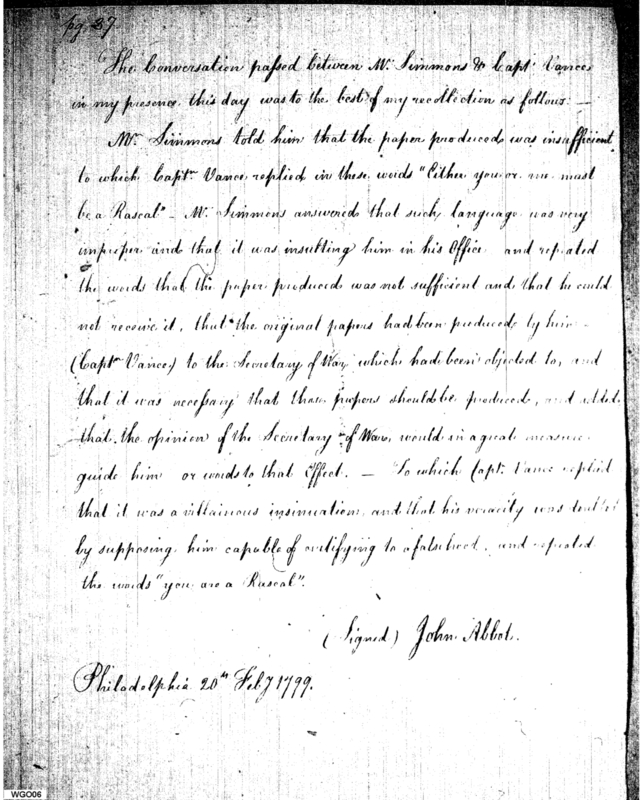 pg. 27
The Conversation passed between Mr. Simmons & Capt. Vance
in my presence this day was to the best of my recollection as follows. —
Mr. Simmons told him that the paper produced was insufficient
to which Captn. Vance replied in these words "Either you or me must
be a Rascal" - Mr. Simmons answered that such language was very
improper and that it was insulting him in his Office and repeated
the words that the paper produced was not sufficient and that he could
not receive it, that the original papers had been produced by him -
(Captn. Vance) to the Secretary of War which had been objected to, and
that it was necessary that those papers should be produced, and added
that the opinion of the Secretary of War, would in a great measure
guide him or words to that Effect. — To which Capt. Vance replied
that it was a villainous insinuation and that his veracity was
by supposing him capable of certifying to a falsehood, and repeated
the words "you are a Rascal".
(Signed) John Abbot.
Philadelphia 20th Feby 1799.
WGO06